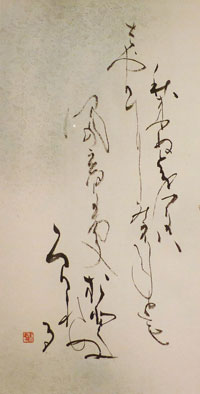 秋来ぬと目には
さやかにみえねとも
風の音にそおとろ
かれぬる